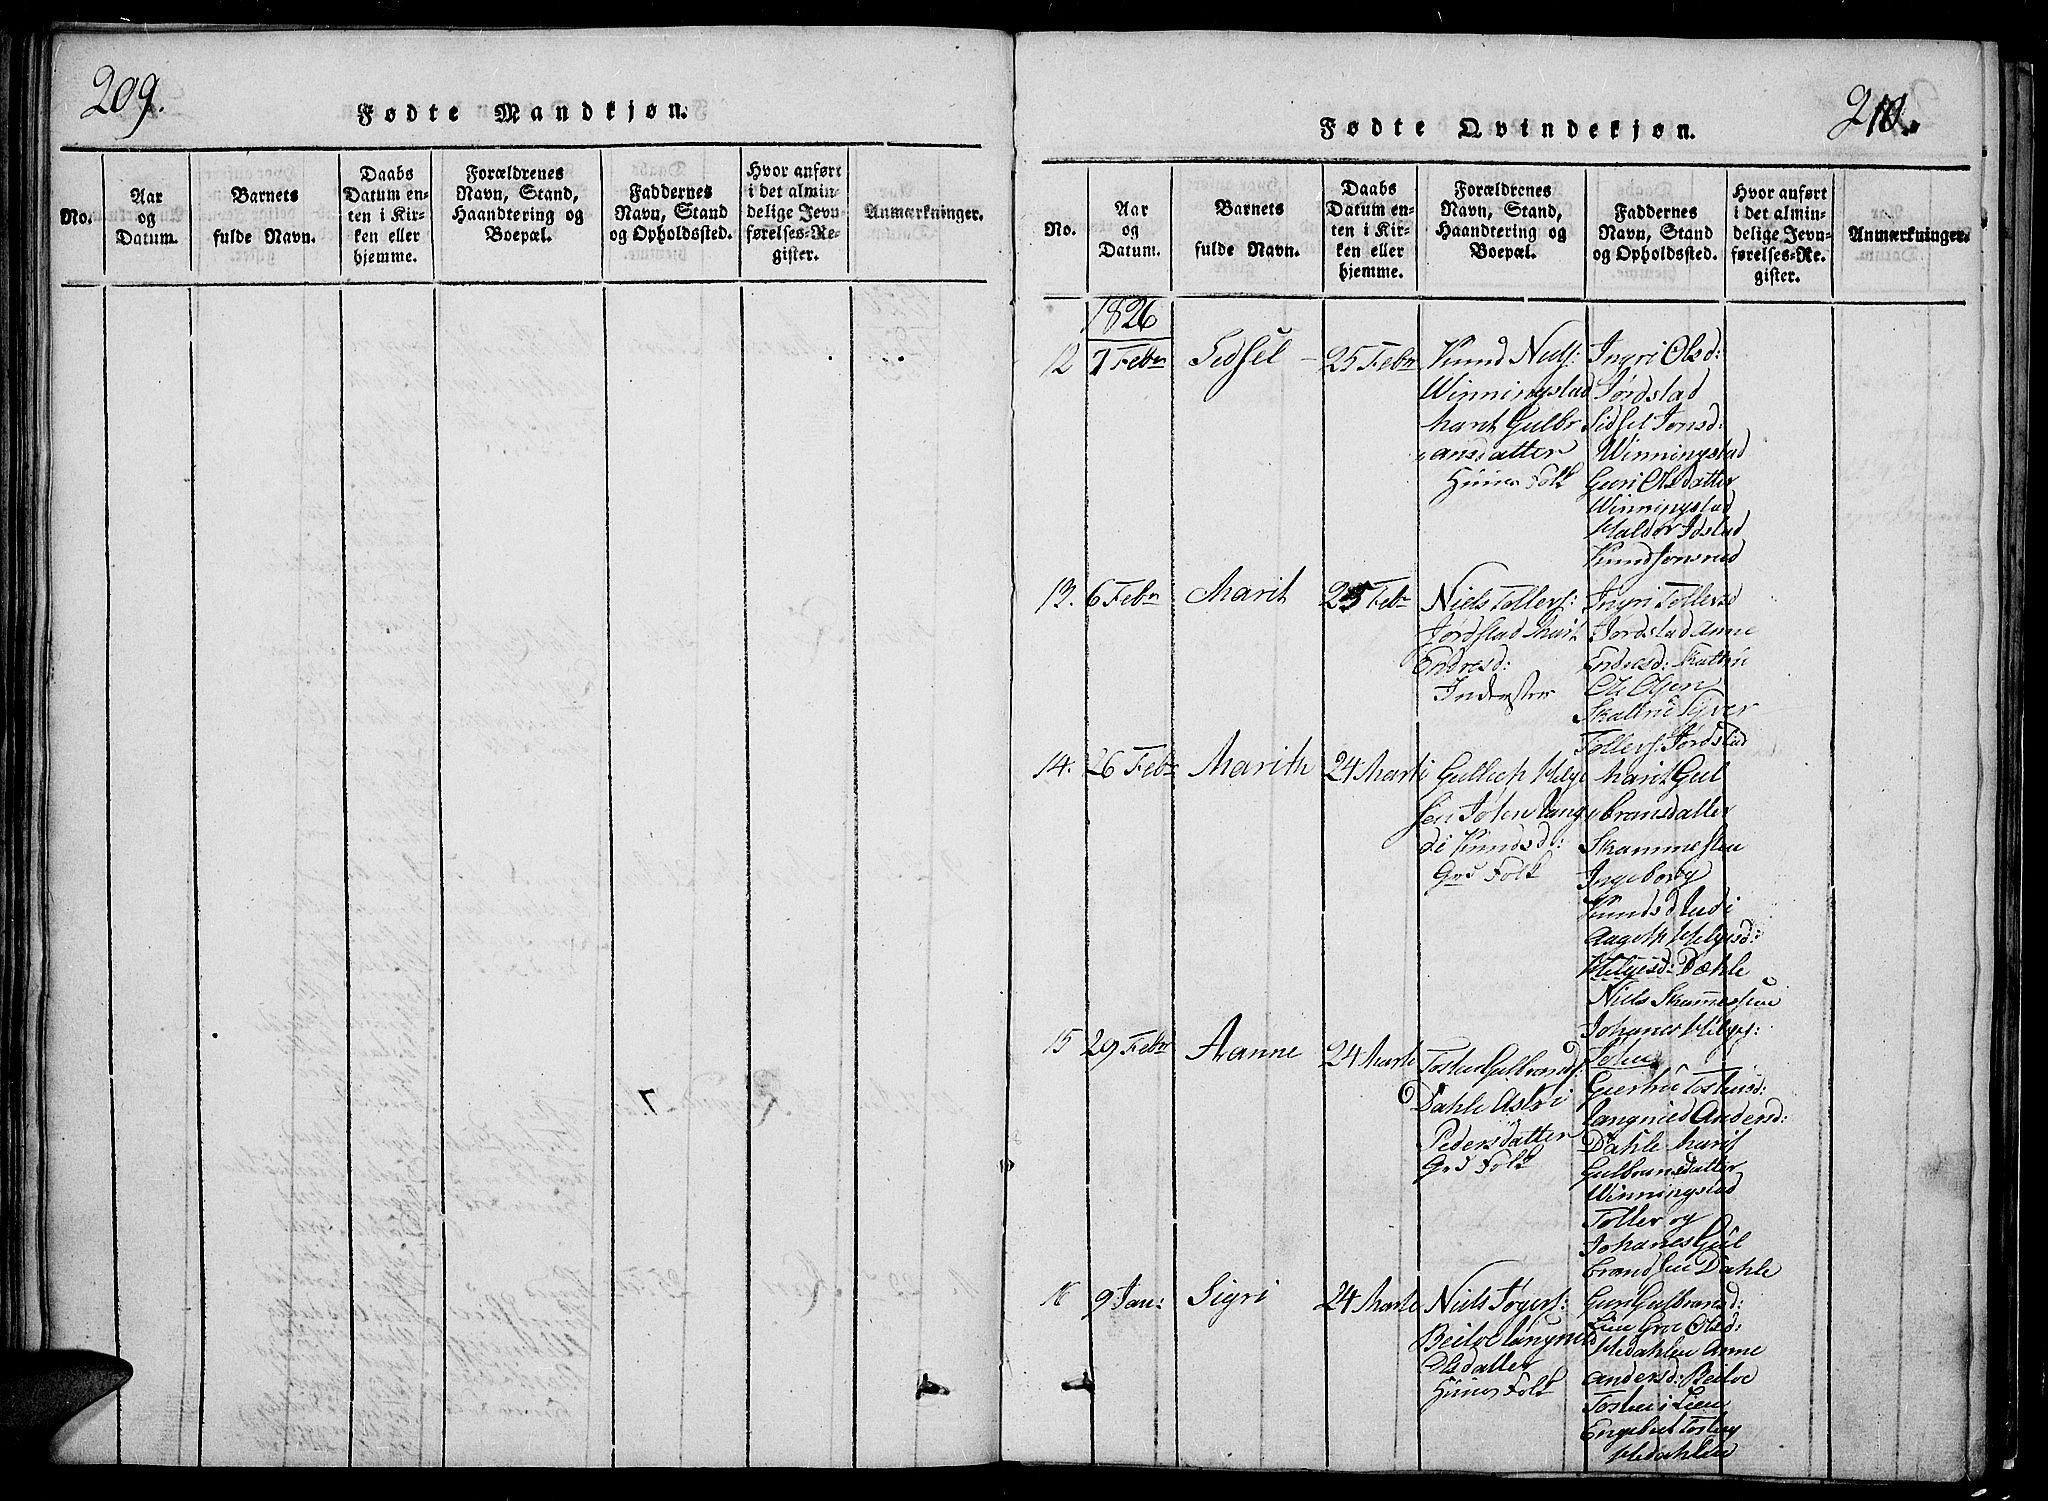 209.
Fødte Mandkjøn.
No.
Aar
og
Datum.
Barnets
fulde Navn.
Daabs
Datum en-
ten i Kir-
ken eller
hjemme.
Forældrenes
Navn, Stand,
Haandtering og
Boepæl.
Faddernes
Navn, Stand
og Opholdssted.
Hvor anført
i det almin-
delige Jevn-
førelses-Re-
gister.
Anmærkninger.
210.
Fødte Qvindekjøn.
No.
Aar
og
Datum.
Barnets
fulde Navn.
Daabs
Datum en-
ten i Kir-
ken eller
hjemme.
Forældrenes
Navn, Stand,
Haandtering og
Boepæl.
Faddernes
Navn, Stand
og Opholdssted.
Hvor anført
i det almin-
delige Jevn-
førelses-Re-
gister.
Anmærkninger.
1826
12
7 Febr
Sidsel
25 Febr
Knud Niels:
Winningstad
Marit Gulbr
ansdatter
Huus Folk
Ingri Olsd:
Jørdstad
Sidsel Jonsd:
Winningstad
Guri Olsdatter
Winningstad
Haldor Idstad
Knud Jonsrud
13.
6 Febr
Marit
25 Febr
Niels Tollefs:
Jørdstad Marit
Endresd:
Inderster
Ingri Tollefsd
Jørdstad Anne
Endresd: Skattrii
Ole Olsen
Skattrii Syver
Tollefs: Jørdstad
14.
26 Febr
Marith
24 Marti
Gullich Helge
sen Joten Rang
di Knudsd:
Grd Folk
Marit Gul
bransdatter
Skammesten
Ingeborg
Knudsd
Aagoth Helgesd:
Helgesd: Dæhle
Niels Skammestein
Johanes Helges:
Joten
15
29 Febr
Aanne
24 Marte
Tosten Gulbrands:
Dahle Astri
Pedersdatter
Grd Folk
Gierthru Tostensd:
Rangnied Andersd:
Dahle Marit
Gulbransdatter
Winningstad
Tollef og
Johanes Gul
brandsen Dahle
16
9 Jan:
Sigri
24 Marte
Niels
Beitoe Rangnied
Olsdatter
Huus Folk
Guri Gulbransd:
Lien Groe Olsd:
Hedahlen Anne
Andersd: Beitoe
Tosten i Lien
Engebret Tosteng
Hedahlen